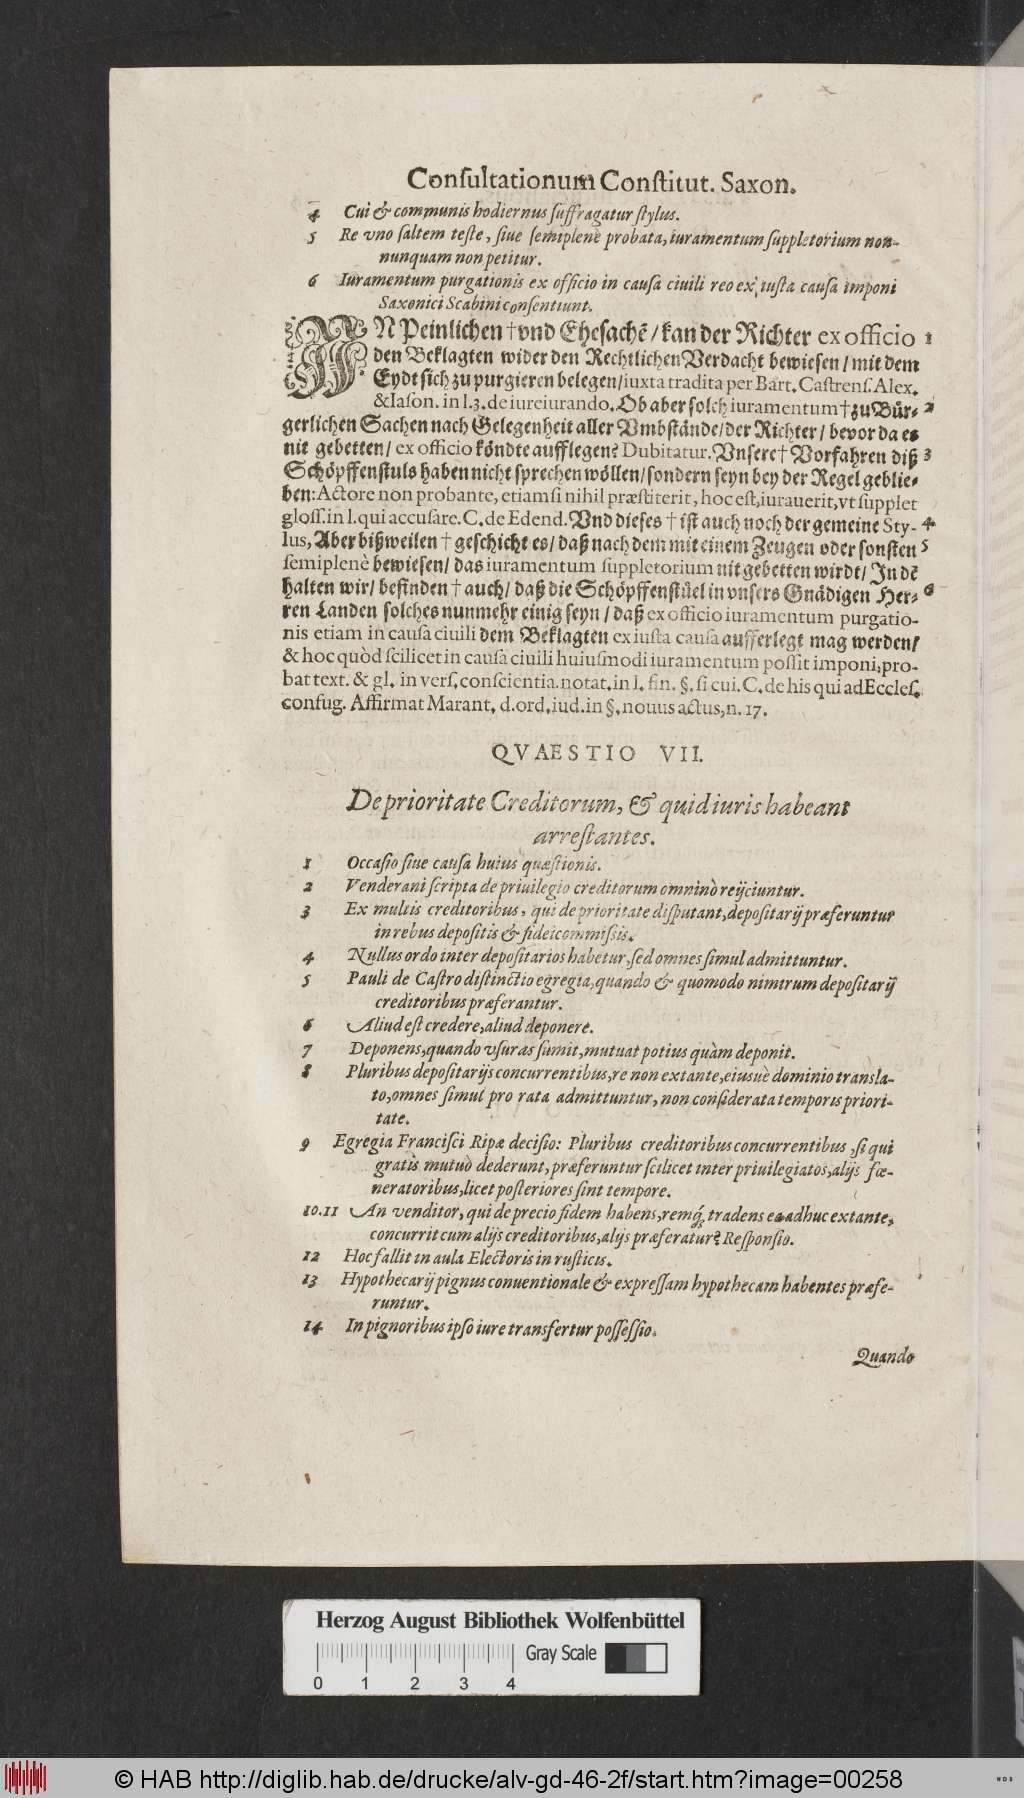 Conſultationum Conſtitut. Saxon.
4 Cui & communis hodiernus ſuffragatur ſtylus.
5 Re vno ſaltem teſte, ſiue ſemiplenè probata, iuramentum ſuppletorium non-
nunquam non petitur.
6 Iuramentum purgationis ex officio in cauſa ciuili reo ex iuſta cauſa imponi
Saxonici Scabini conſentiunt.
IN Peinlichen † vnd Eheſachẽ / kan der Richter ex officio 1
den Beklagten wider den Rechtlichen Verdacht bewieſen / mit dem
Eydt ſich zu purgieren belegen / iuxta tradita per Bart. Caſtrenſ. Alex.
& Iaſon. in l. 3. de iureiurando. Ob aber ſolch iuramentum † zu Bür- 2
gerlichen Sachen nach Gelegenheit aller Vmbſtände / der Richter / bevor da es
nit gebetten / ex officio köndte aufflegen? Dubitatur. Vnſere † Vorfahren diß 3
Schöpffenſtuls haben nicht ſprechen wöllen / ſondern ſeyn bey der Regel geblie-
ben: Actore non probante, etiamſi nihil præſtiterit, hoc eſt, iurauerit, vt ſupplet
gloſſ. in l. qui accuſare. C. de Edend. Vnd dieſes † iſt auch noch der gemeine Sty- 4
lus, Aber bißweilen † geſchicht es / daß nach dem mit einem Zeugen oder ſonſten 5
ſemiplenè bewieſen / das iuramentum ſuppletorium nit gebetten wirdt / In dẽ
halten wir / befinden † auch / daß die Schöpffenſtüel in vnſers Gnädigen Her- 6
ren Landen ſolches nunmehr einig ſeyn / daß ex officio iuramentum purgatio-
nis etiam in cauſa ciuili dem Beklagten ex iuſta cauſa aufferlegt mag werden /
& hoc quòd ſcilicet in cauſa ciuili huiuſmodi iuramentum poſſit imponi, pro-
bat text. & gl. in verſ. conſcientia. notat. in l. fin. §. ſi cui. C. de his qui ad Eccleſ.
confug. Affirmat Marant. d. ord. iud. in §. nouus actus, n. 17.
QVAESTIO VII.
De prioritate Creditorum, & quid iuris habeant
arreſtantes.
1 Occaſio ſiue cauſa huius quæſtionis.
2 Venderani ſcripta de priuilegio creditorum omninò reijciuntur.
3 Ex multis creditoribus, qui de prioritate diſputant, depoſitarij præferuntur
in rebus depoſitis & fideicommiſsis.
4 Nullus ordo inter depoſitarios habetur, ſed omnes ſimul admittuntur.
5 Pauli de Caſtro diſtinctio egregia, quando & quomodo nimirum depoſitarij
creditoribus præferantur.
6 Aliud eſt credere, aliud deponere.
7 Deponens, quando vſuras ſumit, mutuat potius quàm deponit.
8 Pluribus depoſitarijs concurrentibus, re non extante, eiusuè dominio transla-
to, omnes ſimul pro rata admittuntur, non conſiderata temporis priori-
tate.
9 Egregia Franciſci Ripæ deciſio: Pluribus creditoribus concurrentibus, ſi qui
gratis mutuò dederunt, præferuntur ſcilicet inter priuilegiatos, alijs fœ-
neratoribus, licet poſteriores ſint tempore.
10.11 An venditor, qui de precio fidem habens, remq́; tradens ea adhuc extante,
concurrit cum alijs creditoribus, alijs præferatur? Reſponſio.
12 Hoc fallit in aula Electoris in ruſticis.
13 Hypothecarij pignus conuentionale & expreſſam hypothecam habentes præfe-
runtur.
14 In pignoribus ipſo iure transfertur poſſeſſio.
Quando
Herzog August Bibliothek Wolfenbüttel
Gray Scale
0 1 2 3 4
© HAB http://diglib.hab.de/drucke/alv-gd-46-2f/start.htm?image=00258